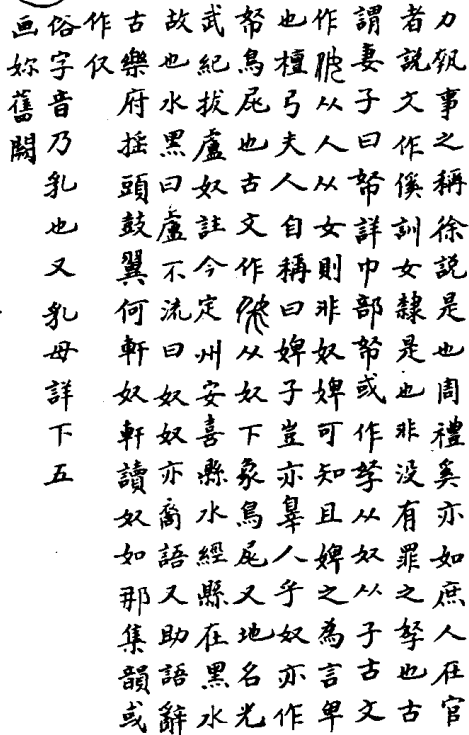 力執事之稱徐説是也周禮奚亦如庶人在官
者説文作傒訓女隸是也非没有罪之孥也古
謂妻子曰帑詳巾部帑或作孥从奴从子古文
作㚢从人从女則非奴婢可知且婢之為言卑
也檀弓夫人自稱曰婢子豈亦辠人乎奴亦作
帑鳥尾也古文作 从奴下象鳥尾又地名光
武紀拔盧奴註今定州安喜縣水經縣在黑水
故也水黑曰盧不流曰奴奴亦裔語又助語辭
古樂府摇頭鼓翼何軒奴軒讀奴如那集韻或
作仅
俗字音乃乳也又乳母詳下五
画妳舊闕